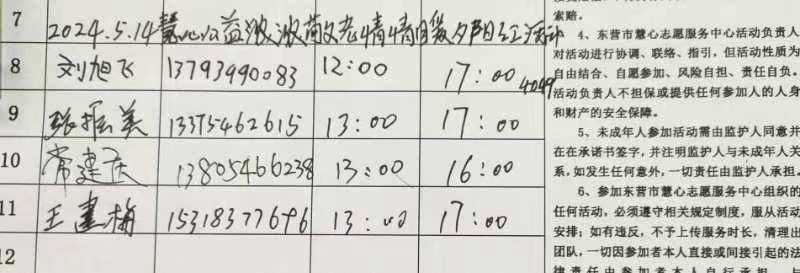 7 2024.5.14慧心公益波波
8 刘旭飞 13793990083 12:00 17:00
4049
9 张振美 13375462615 13:00 17:00
10 常建庆 13805466238 13:00 16:00
11 王建梅 15318377696 13:00 17:00
12
索赔。
4、东营市慧心志愿服务中心活动负责人
对活动进行协调、联络、指引，但活动性质为
自由结合、自愿参加、风险自担、责任自负。
活动负责人不担保或提供任何参加人的人身
和财产的安全保障。
5、未成年人参加活动需由监护人同意并
在在承诺书签字，并注明监护人与未成年人关
系，如发生任何意外，一切责任由监护人承担。
6、参加东营市慧心志愿服务中心组织的
任何活动，必须遵守相关规定制度，服从活动
安排；如有违反，不予上传服务时长，清理出
团队，一切因参加者本人直接或间接引起的法
律责任由参加者本人自行承担，与